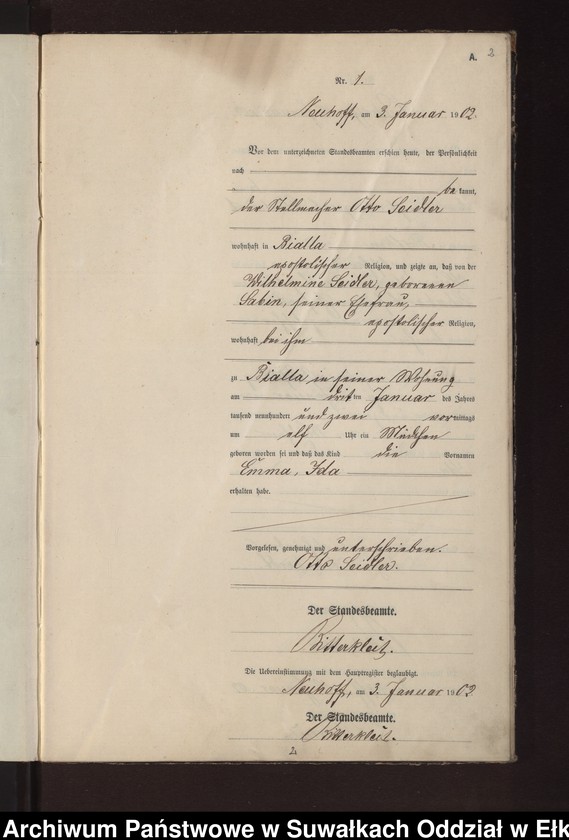 A. 2
Nr. 1.
Neuhoff, am 3. Januar 1902.
Vor dem unterzeichneten Standesbeamten erschien heute, der Persönlichkeit
nach
be kannt,
der Stellmacher Otto Seidler
wohnhaft in Bialla
apostolischer Religion, und zeigte an, daß von der
Wilhelmine Seidler, geborenen
Sabin, seiner Ehefrau,
apostolischer Religion,
wohnhaft bei ihm
zu Bialla in seiner Wohnung
am dritten Januar des Jahres
tausend neunhundert und zwei vormittags
um elf Uhr ein Mädchen
geboren worden sei und daß das Kind die Vornamen
Emma, Ida
erhalten habe.
Vorgelesen, genehmigt und unterschrieben.
Otto Seidler.
Der Standesbeamte.
Ritterkleit.
Die Uebereinstimmung mit dem Hauptregister beglaubigt.
Neuhoff, am 3. Januar 1902
Der Standesbeamte.
Ritterkleit.
Archiwum Państwowe w Suwałkach Oddział w Ełk